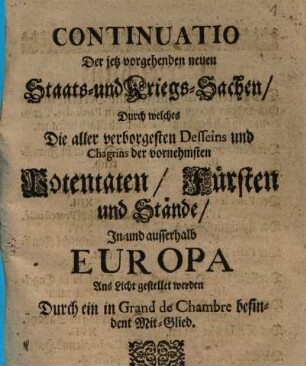 1
CONTINUATIO
Der jetz vorgehenden neuen
Staats-und Kriegs-Sachen/
Durch welches
Die aller verborgesten Desseins und
Chagrins der vornehmsten
Potentaten/ Fürsten
und Stände/
In-und ausserhalb
EUROPA
Ans Licht gestellet werden
Durch ein in Grand de Chambre befin-
dent Mit-Glied.